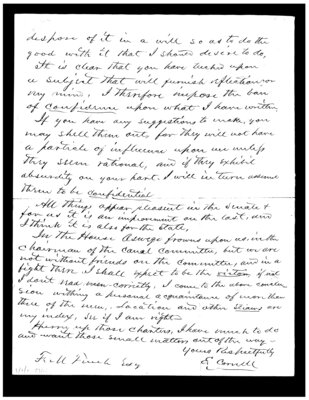 dispose of it in a will so as to do the
good with it that I should desire to do.
It is clear that you have touched upon
a subject that will furnish reflection for
my mind. I therefore impose the ban
of confidence upon what I have written
If you have any suggestions to make, you
may shell them out, for they will not have
a particle of influence upon me unless
they seem rational, and if they exhibit
absurdity on your part. I will in turn assume
them to be confidential
All things appear pleasant in the Senate &
for us it is an improvement on the last, and
I think it is also for the State,
In the House Oswego frowns upon us, in the
Chairman of the Canal Committee, but we are
not without friends on the Committee, and in a
fight then I shall expect to be the victor if
I dont read men correctly, I come to the above conclu
sion with a personal acquaintance of more than
three of the men. Location and other
my index, see if I am right
Hurry up those Charters, I have much to do
and want those small matters out of the way—
Yours Respectfully
E Cornell
F. M. Finch Esq